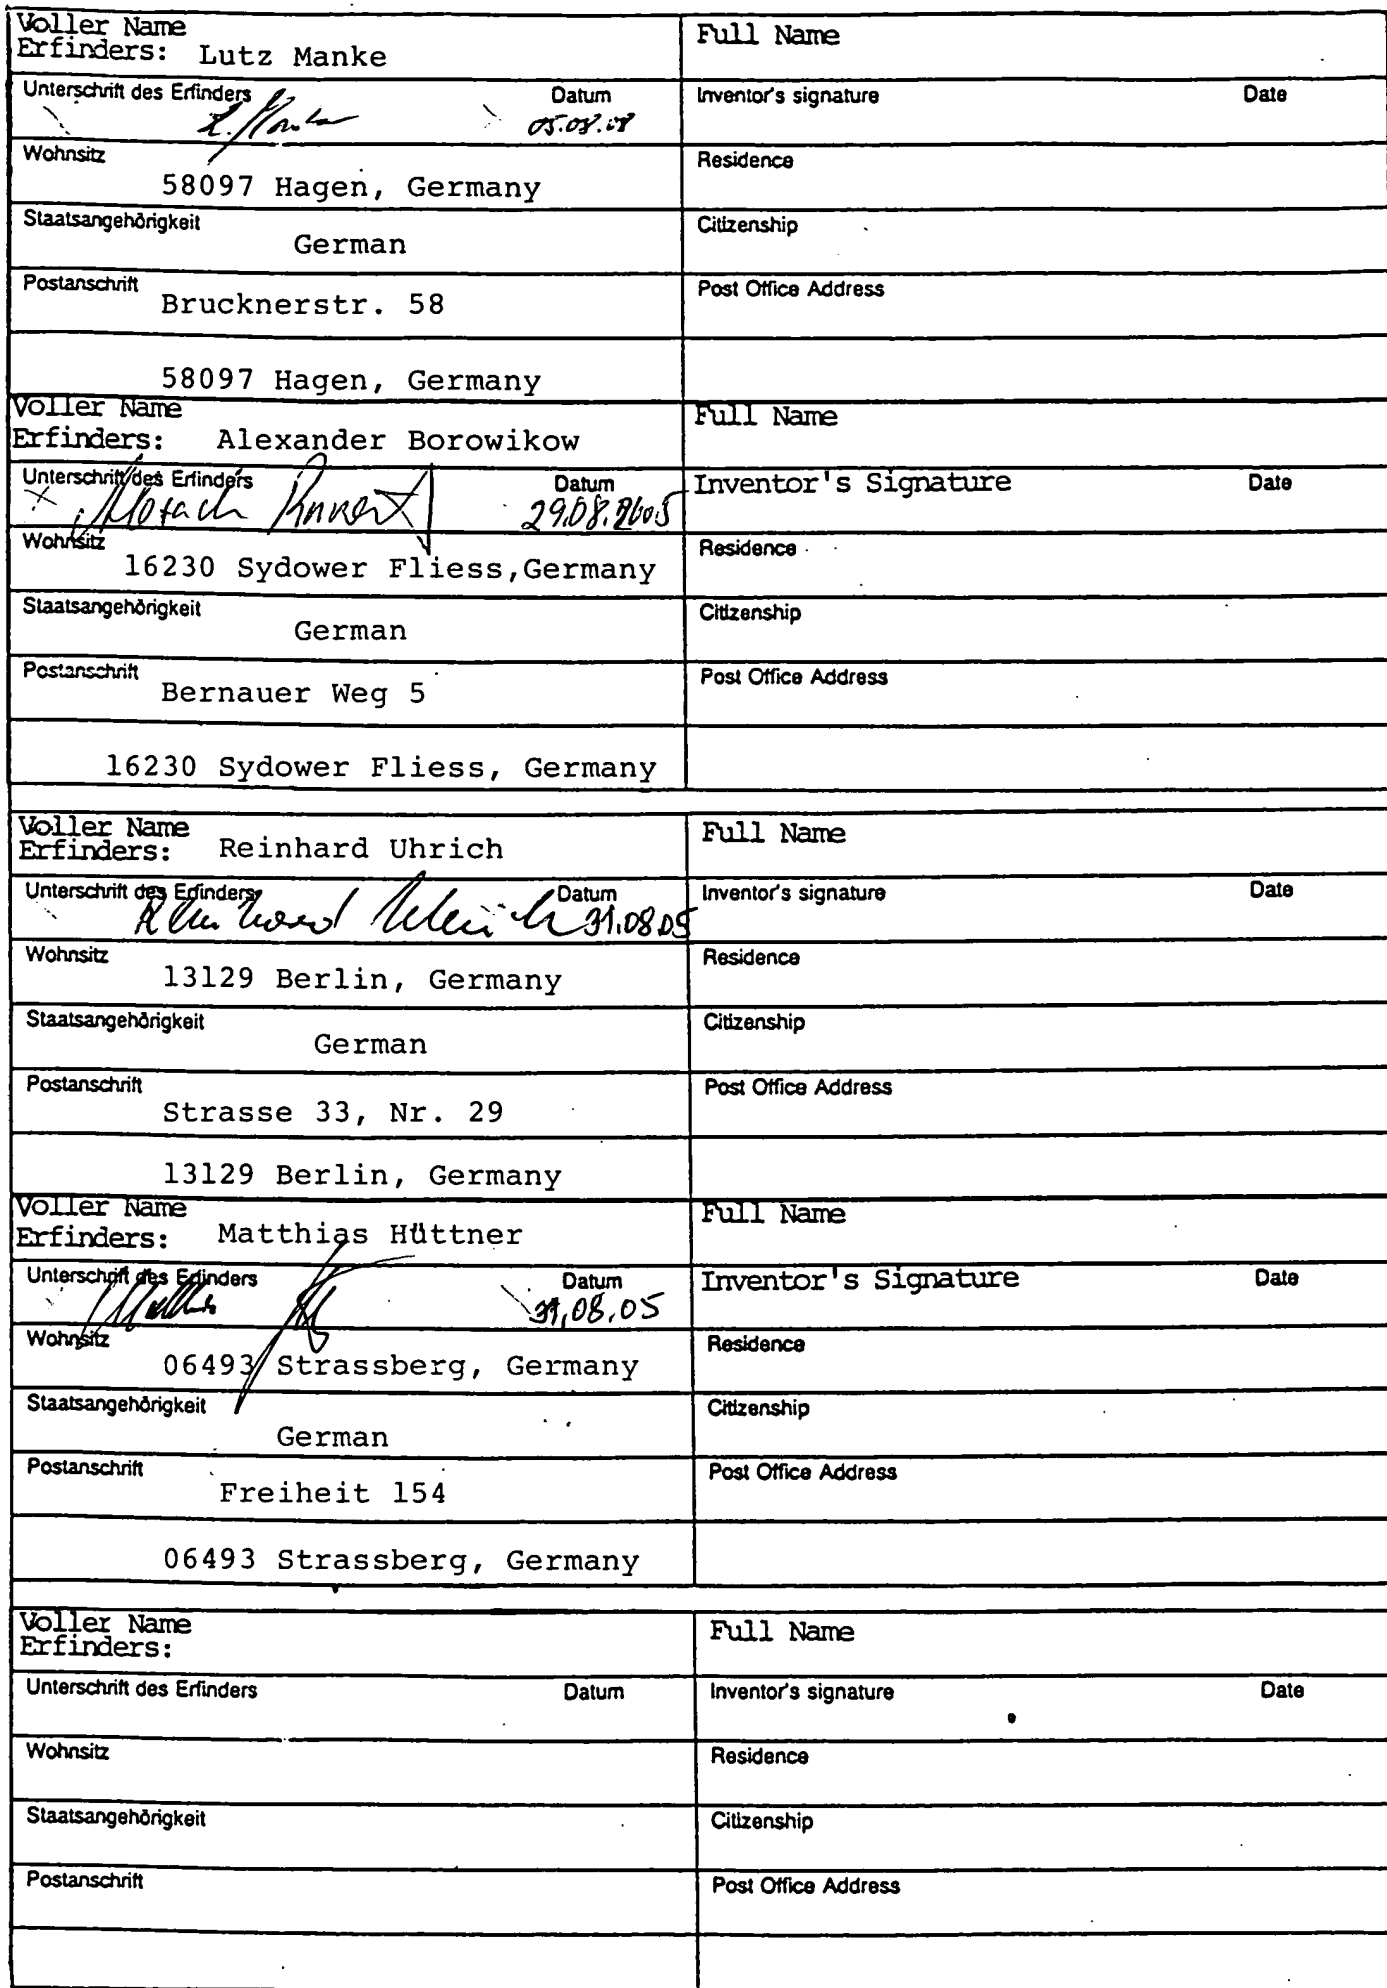 Voller Name
Erfinders: Lutz Manke
Full Name
Unterschrift des Erfinders Datum
Inventor's signature Date
Wohnsitz
58097 Hagen, Germany
Residence
Staatsangehörigkeit
German
Citizenship
Postanschrift
Brucknerstr. 58
Post Office Address
58097 Hagen, Germany
Voller Name
Erfinders: Alexander Borowikow
Full Name
Unterschrift des Erfinders Datum
29.08.2005
Inventor's Signature Date
Wohnsitz
16230 Sydower Fliess,Germany
Residence
Staatsangehörigkeit
German
Citizenship
Postanschrift
Bernauer Weg 5
Post Office Address
16230 Sydower Fliess, Germany
Voller Name
Erfinders: Reinhard Uhrich
Full Name
Unterschrift des Erfinders Datum
Reinhard Uhrich 31.08.05
Inventor's signature Date
Wohnsitz
13129 Berlin, Germany
Residence
Staatsangehörigkeit
German
Citizenship
Postanschrift
Strasse 33, Nr. 29
Post Office Address
13129 Berlin, Germany
Voller Name
Erfinders: Matthias Hüttner
Full Name
Unterschrift des Erfinders Datum
31.08.05
Inventor's Signature Date
Wohnsitz
06493 Strassberg, Germany
Residence
Staatsangehörigkeit
German
Citizenship
Postanschrift
Freiheit 154
Post Office Address
06493 Strassberg, Germany
Voller Name
Erfinders:
Full Name
Unterschrift des Erfinders Datum
Inventor's signature Date
Wohnsitz
Residence
Staatsangehörigkeit
Citizenship
Postanschrift
Post Office Address